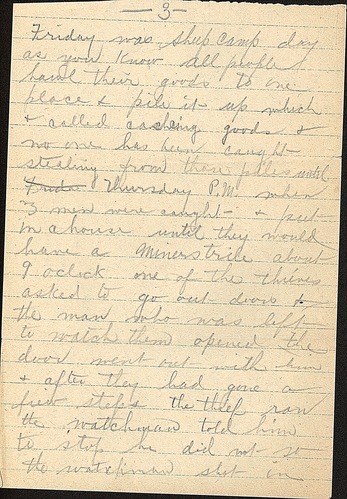 — 3 —
Friday was sheep camp day
as you know all people
haul their goods to one
place & pile it up which
is called caching goods &
no one has been caught
stealing from those piles until
Thursday P.M. when
3 men were caught & put
in a house until they would
have a Miners trile about
9 oclock one of the thieves
asked to go out doors &
the man who was left
to watch them opened the
door went out with him
& after they had gone a
few steps the thief ran
the watchman told him
to stop he did not so
the watchman shot in